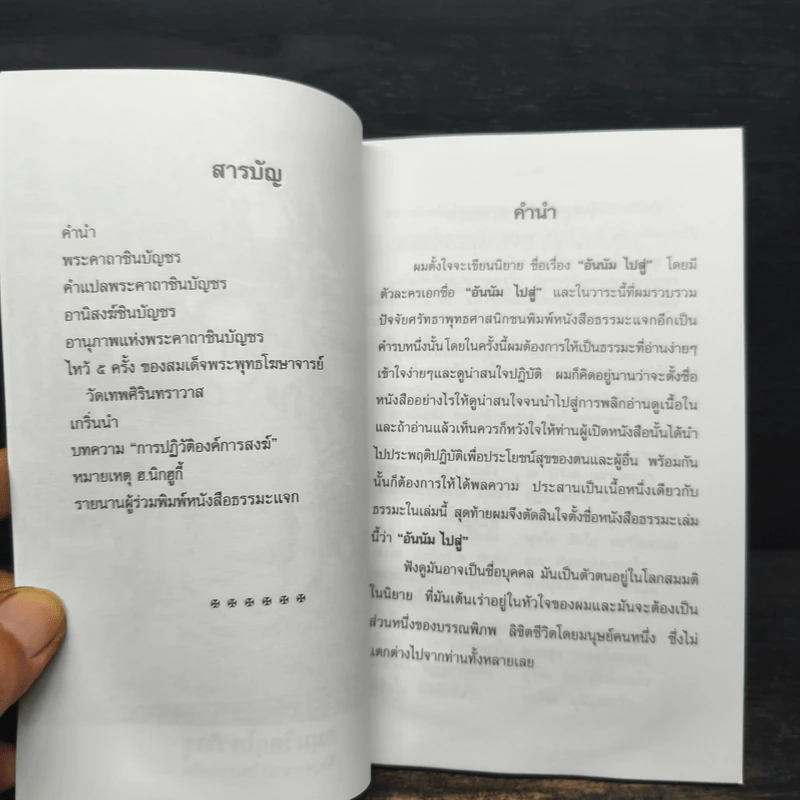 สารบัญ
คำนำ
พระคาถาชินบัญชร
คำแปลพระคาถาชินบัญชร
อานิสงฆ์ชินบัญชร
อานุภาพแห่งพระคาถาชินบัญชร
ไหว้ ๕ ครั้ง ของสมเด็จพระพุทธโฆษาจารย์
วัดเทพศิรินทราวาส
เกริ่นนำ
บทความ “การปฏิวัติองค์การสงฆ์”
หมายเหตุ ฮ.นิกฮูกี้
รายนามผู้ร่วมพิมพ์หนังสือธรรมะแจก
✠ ✠ ✠ ✠ ✠ ✠
คำนำ
ผมตั้งใจจะเขียนนิยาย ชื่อเรื่อง “อันนัม ไปสู่” โดยมี
ตัวละครเอกชื่อ “อันนัม ไปสู่” และในวาระนี้ที่ผมรวบรวม
ปัจจัยศรัทธาพุทธศาสนิกชนพิมพ์หนังสือธรรมะแจกอีกเป็น
คำรบหนึ่งนั้น โดยในครั้งนี้ผมต้องการให้เป็นธรรมะที่อ่านง่ายๆ
เข้าใจง่ายๆและดูน่าสนใจปฎิบัติ ผมก็คิดอยู่นานว่าจะตั้งชื่อ
หนังสืออย่างไรให้ดูน่าสนใจจนนำไปสู่การพลิกอ่านดูเนื้อใน
และถ้าอ่านแล้วเห็นควรก็หวังใจให้ท่านผู้เปิดหนังสือนั้นได้นำ
ไปประพฤติปฏิบัติเพื่อประโยชน์สุขของตนและผู้อื่น พร้อมกัน
นั้นก็ต้องการให้ได้พลความ ประสานเป็นเนื้อหนึ่งเดียวกับ
ธรรมะในเล่มนี้ สุดท้ายผมจึงตัดสินใจตั้งชื่อหนังสือธรรมะเล่ม
นี้ว่า “อันนัม ไปสู่”
ฟังดูมันอาจเป็นชื่อบุคคล มันเป็นตัวตนอยู่ในโลกสมมติ
ในนิยาย ที่มันเต้นเร่าอยู่ในหัวใจของผมและมันจะต้องเป็น
ส่วนหนึ่งของบรรณพิภพ ลิขิตชีวิตโดยมนุษย์คนหนึ่ง ซึ่งไม่
แตกต่างไปจากท่านทั้งหลายเลย